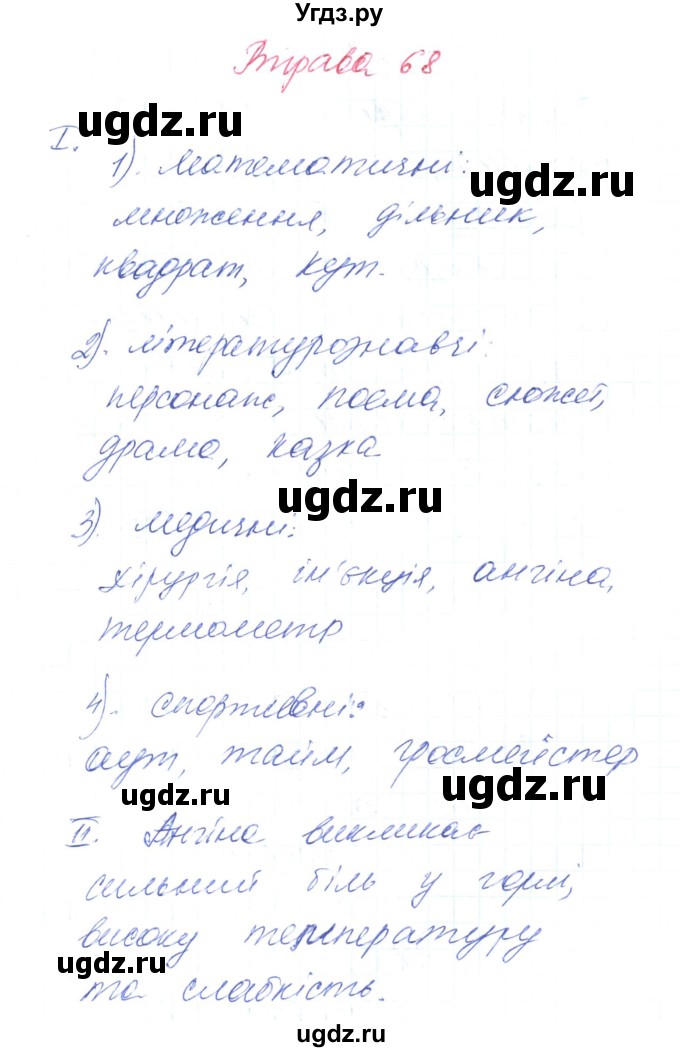 Угдз.ру
Вправа 68
ugdz.ru
I.
1). математичні:
ugdz.ru
множення, дільник,
квадрат, кут.
2). літературознавчі:
персонаж, поема, сюжет,
драма, казка
ugdz.ru
3). медичні:
хірургія, ін'єкція, ангіна,
термометр
4). спортивні:
аут, тайм, гросмейстер
ugdz.ru
ugdz.ru
II. Ангіна викликає
сильний біль у горлі,
високу температуру
ugdz.ru
та слабкість.
ugdz.ru